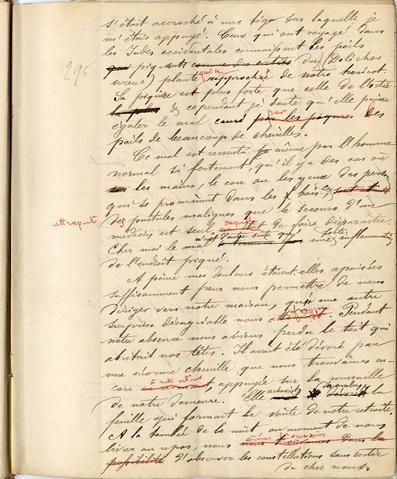 s'était accroché à une tige sur laquelle je
m'étais appuyé. Ceux qui ont voyagé dans
les Indes occidentales connaissent les poils
295
piquants du Dolichos
urens, plante qui a rapproché de notre haricot.
Sa piqûre est plus forte que celle de l'ortie
& cependant je doute qu'elle puisse
égaler le mal causé par les piqures des
poils de beaucoup de chenilles.
Ce mal est ressenti même par l'homme
normal si fortement, qu'il y a des cas où
les mains, le cou ou les yeux des pers.
qui se promènent dans les bois
attrapent des pustules malignes que le secours d'un
médecin est seul capable de faire disparaître.
Chez moi le mal n'eut d'autre suite que une forte inflammation
de l'endroit piqué.
A peine mes douleurs étaient-elles apaisées
suffisamment pour nous permettre de nous
diriger vers notre maison, qu'une autre
surprise désagréable nous Pendant
notre absence nous avions perdu le toit qui
abritait nos têtes. Il avait été dévoré par
une énorme chenille que nous trouvâmes en-
core appuyée sur la muraille
de notre demeure. Elle achevait la
feuille qui formait la voûte de notre retraite.
A la tombée de la nuit, au moment de nous
livrer au repos, nous dans la
possibilité d'observer les constellations sans sortir
de chez nous.